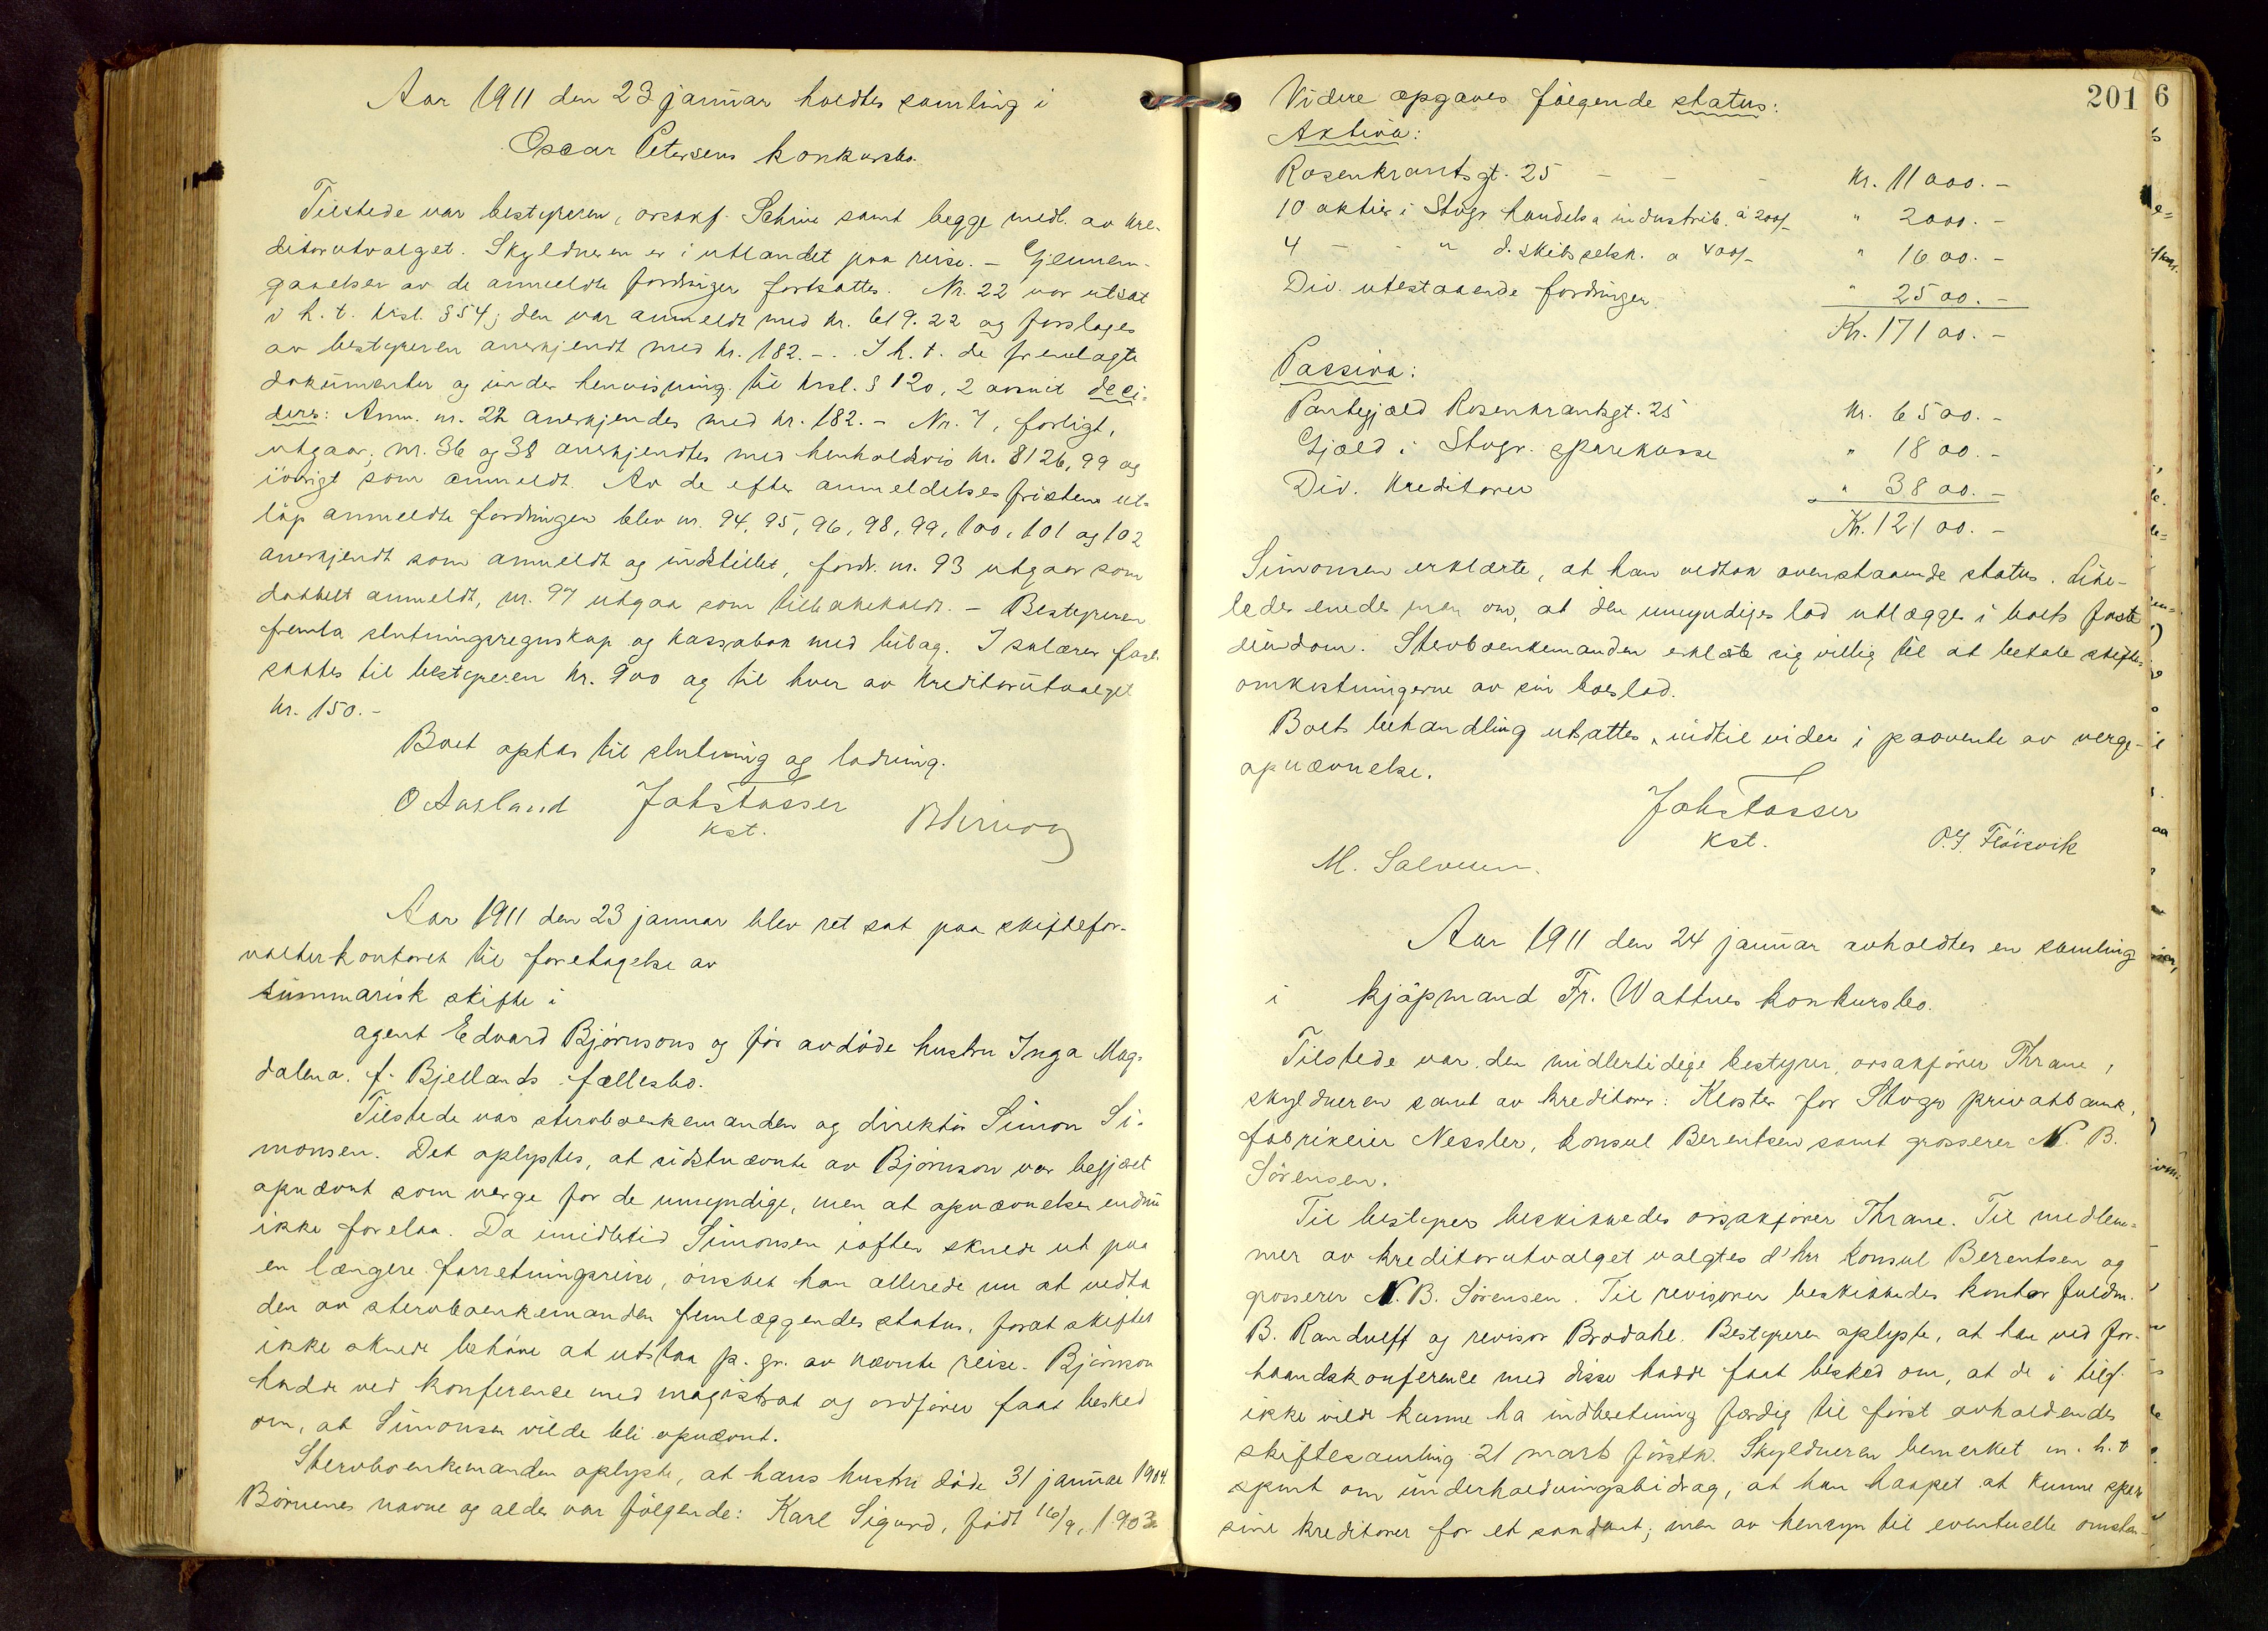 Aar 1911 den 23 januar holdtes samling i
Oscar Petersens konkursbo.
Tilstede var bestyreren, orsakf. Schiøe samt begge medl. av kre-
ditorutvalget. Skyldneren er i utlandet paa reise. – Gjennem-
gaaelsen av de anmeldte fordringer fortsattes. Nr. 22 var utsat
i h. t. krsl. § 54; den var anmeldt med kr. 619.22 og forslages
av bestyreren anerkjendt med kr. 182.–. I h. t. de fremlagte
dokumenter og under henvisning til krsl. § 120, 2 avsnit deci-
deres: Anm. nr. 22 anerkjendes med kr. 182.– Nr. 7, forligt,
utgaar; nr. 36 og 38 anerkjendtes med henholdsvis kr. 8126,99 og
iövrigt som anmeldt. Av de efter anmeldelsesfristens ut-
löp anmeldte fordringer blev nr. 94, 95, 96, 98, 99, 100, 101 og 102
anerkjendt som anmeldt og indstillet, fordr. nr. 93 utgaar som
dobbelt anmeldt, nr. 97 utgaa som tilbakekaldt. – Bestyreren
fremla slutningsregnskap og kassabok med bilag. I salærer fast-
sattes til bestyreren kr. 900 og til hver av kreditorutvalget
kr. 150.–
Boet optas til slutning og lodning.
O Aasland JohsTasser
kst.
Aar 1911 den 23 januar blev ret sat paa skiftefor-
valterkontoret til foretagelse av
summarisk skifte i
agent Edvard Björnsons og för avdöde hustru Inga Mag-
dalena f. Bjellands fællesbo.
Tilstede var stervboenkemanden og direktör Simon Si-
monsen. Det oplystes, at sidstnævnte av Björnson var begjært
opnævnt som verge for de umyndige, men at opnævnelsen endnu
ikke forelaa. Da imidlertid Simonsen iaften skulde ut paa
en længere forretningsreise, önsket han allerede nu at vedta
den av stervboenkemanden fremlæggendes status, forat skiftet
ikke skulde behöve at utstaa p. gr. av nævnte reise. Björnson
hadde ved konference med magistrat og ordförer faat besked
om, at Simonsen vilde bli opnævnt.
Stervboenkemanden oplyste, at hans hustru döde 31 januar 1904.
Börnenes navne og alder var fölgende: Karl Sigurd, födt 16/9, 1903
201
6
Videre opgaves fölgende status:
Aktiva:
Rosenkrantsgt. 25 – – – kr. 11000.–
10 aktier i Stvgr. handels & industrib. á 200/– " 2000.–
4 – - " d. skibsselsk. a 400/– " 1600.–
Div. utestaaende fordringer " 2500.–
Kr. 17100.–
Passiva:
Pantegjæld Rosenkrantsgt. 25 kr. 6500.–
Gjæld i Stvgr. sparekasse " 1800.–
Div. kreditorer " 3800.–
Kr. 12100.–
Simonsen erklærte, at han vedtok ovenstaaende status. Like-
ledes enedes man om, at den umyndiges lod utlægges i boets faste
eiendom. Stervboenkemanden erklærte sig villig til at betale skifte-
omkostningerne av sin boslod.
Boets behandling utsattes indtil videre i paavente av verge-
opnævnelse.
JohsTasser
kst. O.G. Flöisvik
M. Salvesen.
Aar 1911 den 24 januar avholdtes en samling
i kjöpmand Fr. Wattnes konkursbo.
Tilstede var den midlertidige bestyrer, orsakförer Thrane,
skyldneren samt av kreditorer: Kloster for Stvgr privatbank,
fabrikeier Nessler, konsul Berentsen samt grosserer N. B.
Sörensen.
Til bestyrer beskikkedes orsakförer Thrane. Til medlem-
mer av kreditorutvalget valgtes d'hrr konsul Berentsen og
grosserer N. B. Sörensen. Til revisorer beskikkedes kontorfuldm.
B. Randulff og revisor Brodahl. Bestyreren oplyste, at han ved for-
haandskonference med disse hadde faat besked om, at de i tilf.
ikke vilde kunne ha indberetning færdig til först avholdendes
skiftesamling 21 marts förstk. Skyldneren bemerket m. h. t.
spmt om underholdningsbidrag, at han haapet at kunne spare
sine kreditorer for et saadant; men av hensyn til eventuelle omstæn-